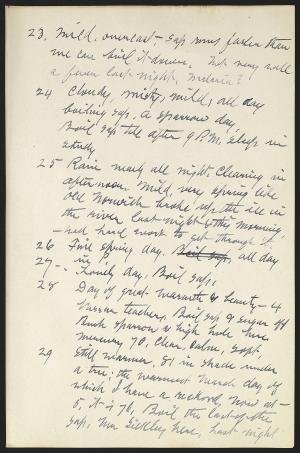 23, Mild, overcast - sap runs faster than
we can boil it down. Not very well
a fever last night, malaria?
24 Cloudy, misty, mild, all day
boiling sap. A sparrow day,
Boil sap till after 9 P.M. Sleep in
study
25 Rain nearly all night. Clearing in
afternoon. Mild, very spring like
Old Norwich broke up the ice in
the river last night & this morning.
- had hard work to get through it.
26 Fine spring day. Boil sap, all day
27 - in P.
- Lovely day, Boil sap,
28 Day of great warmth & beauty - 4
Vassar teachers, Boil sap & sugar off
Bush sparrow & high hole here
Mercury 70, Clear, calm, soft,
29 Still warmer, 81 in shade under
a tree; the warmest March day of
which I have a record, now at -
5, it is 76, Boil the last of the
sap, Mr. here, last night